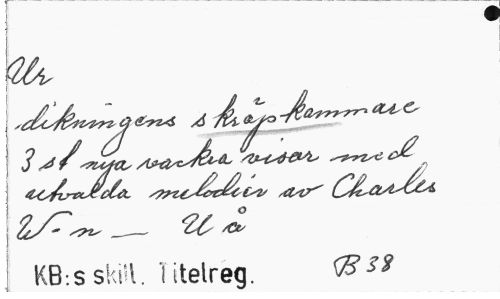 Ur
dikningens skräpkammare
3 st nya vackra visor med
utvalda melodier av Charles
W-n — U å
KB:s skill. Titelreg. B 38